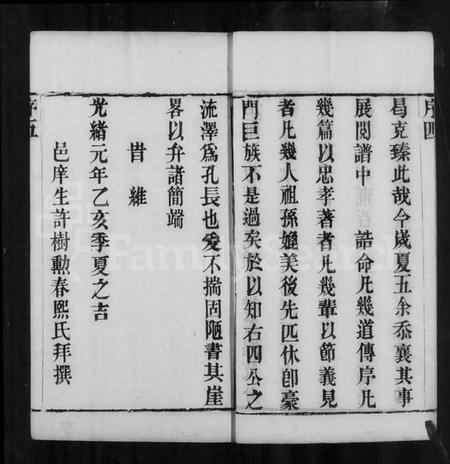 序四
曷克臻此哉今歲夏五余忝襄其事
展閱譜中 誥命凡幾道傳序凡
幾篇以忠孝著者凡幾輩以節義見
者凡幾人祖孫媲美後先匹休卽豪
門巨族不是過矣於以知右四公之
流澤爲孔長也爰不揣固陋書其崖
畧以弁諸簡端
旹維
光緒元年乙亥季夏之吉
邑庠生許樹勳春熙氏拜撰
序五
FamilySearch